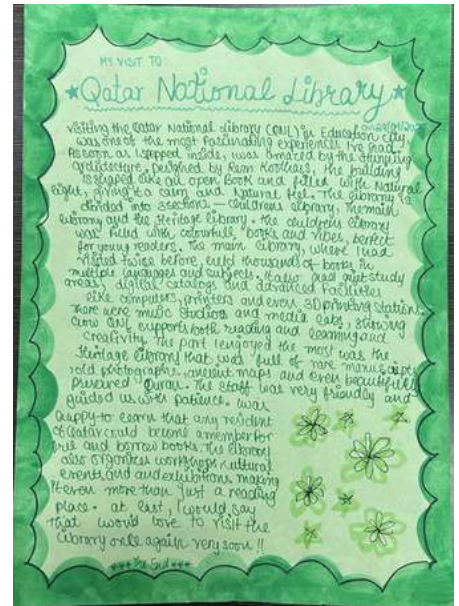 MY VISIT TO:
Qatar National Library
Visiting the Qatar National Library (QNL) in Education city
was one of the most fascinating experiences I've had.
As soon as I stepped inside, I was amazed by the stunning
architecture. Designed by Rem Koolhaas, the building
is shaped like an open book and filled with Natural
light, giving it a calm and natural feel. The library is
divided into 3 sections — Childrens library, The main
library and the Heritage library. The childrens library
was filled with colourfull books and vibes, perfect
for young readers. The main library, where I had
visited twice before, held thousands of books in
multiple languages and subjects. It also had quiet study
areas, digital catalogs and advanced facilities
like computers, printers and even 3D printing station.
There were music studios and media labs, showing
how QNL supports both reading and learning and
creativity. The part I enjoyed the most was the
Heritage library that was full of rare manuscripts
old photographs, ancient maps and even beautifully
preserved Quran. The staff was very friendly and
guided us with patience. I was
happy to learn that any resident
of Qatar could become a member for
free and borrow books. The library
also organizes workshops cultural
events and exhibitions making
it even more than just a reading
place. at last, I would say
that I would love to visit the
library once again very soon !!
The End